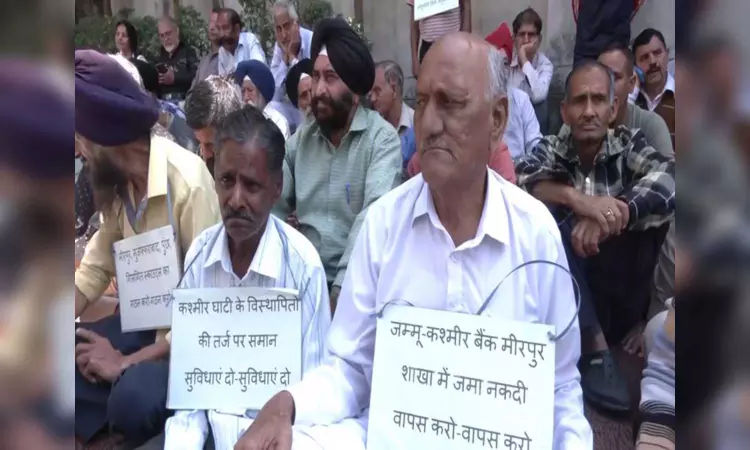 मीरपुर, मुजफ्फराबाद, पुंछ
कश्मीर घाटी के विस्थापितों
की तर्ज पर समान
सुविधाएं दो-सुविधाएं दो
जम्मू-कश्मीर बैंक मीरपुर
शाखा में जमा नकदी
वापस करो-वापस करो